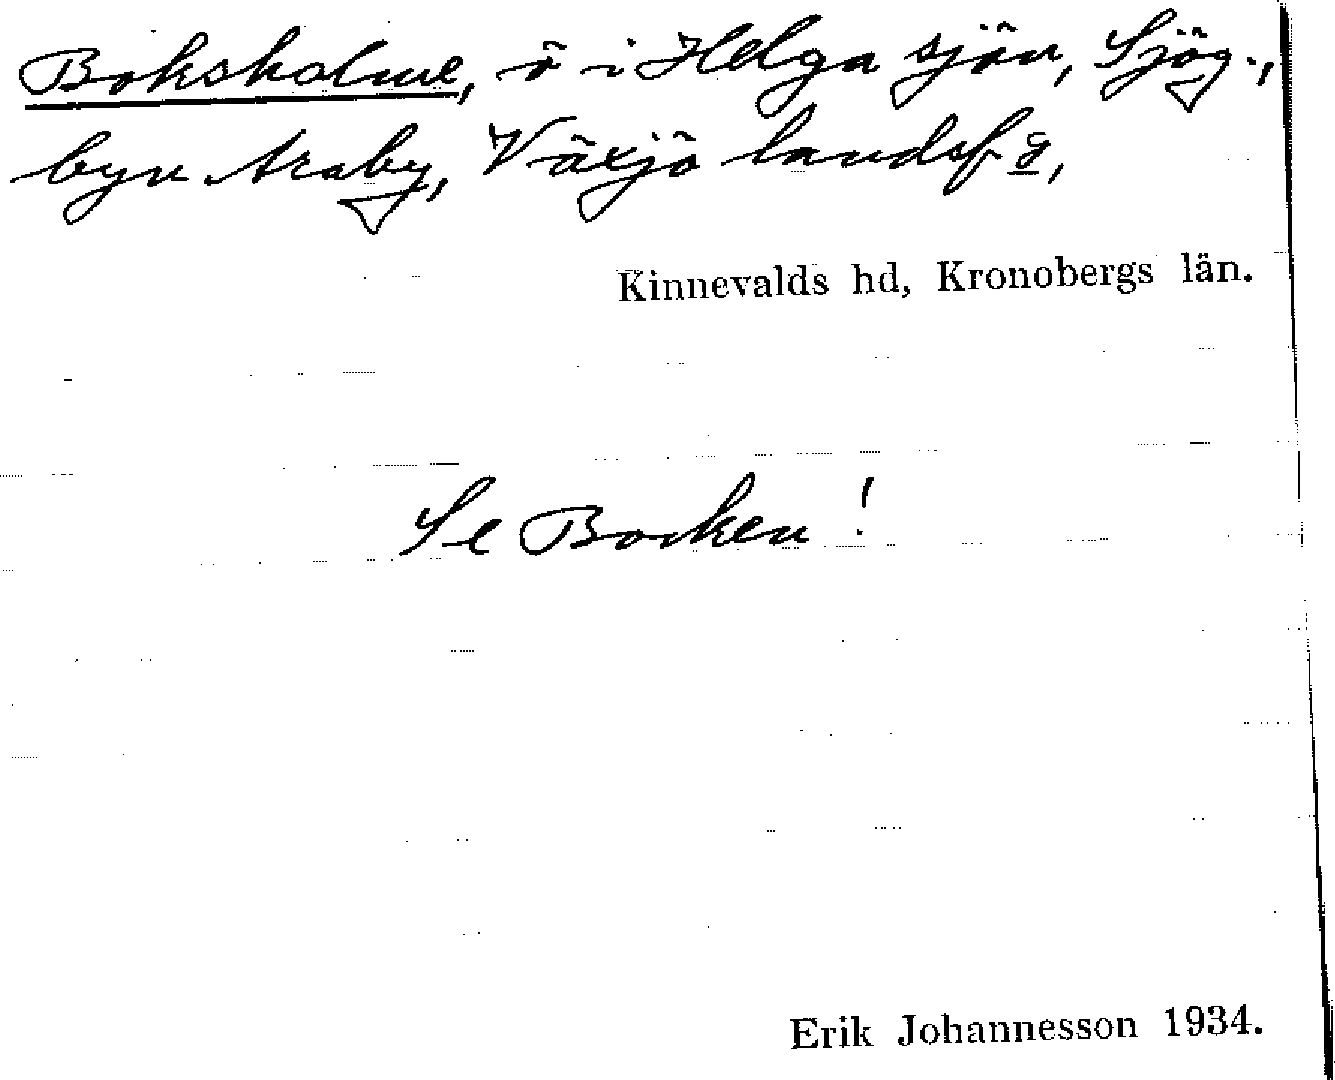 Boksholme, ö i Helga sjön, Sjög.,
byn Araby, Växjö landsf͟g,
Kinnevalds hd, Kronobergs län.
Se Bocken!
Erik Johannesson 1934.